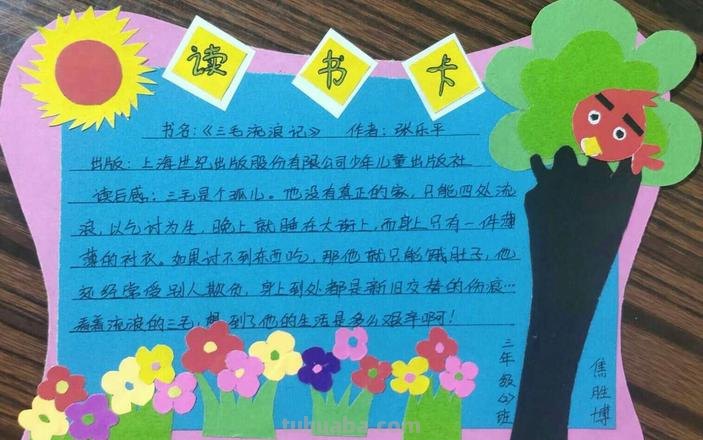 读书卡
书名:《三毛流浪记》 作者:张乐平
出版:上海世纪出版股份有限公司少年儿童出版社
读后感:三毛是个孤儿。他没有真正的家,只能四处流
浪,以乞讨为生,晚上就睡在大街上,而身上只有一件薄
薄的衬衣。如果讨不到东西吃,那他就只能饿肚子,他
还经常受别人欺负,身上到处都是新旧交替的伤痕…
看着流浪的三毛,想到了他的生活是多么艰辛啊!
三年级(2)班
焦胜博
tuhuaba.com